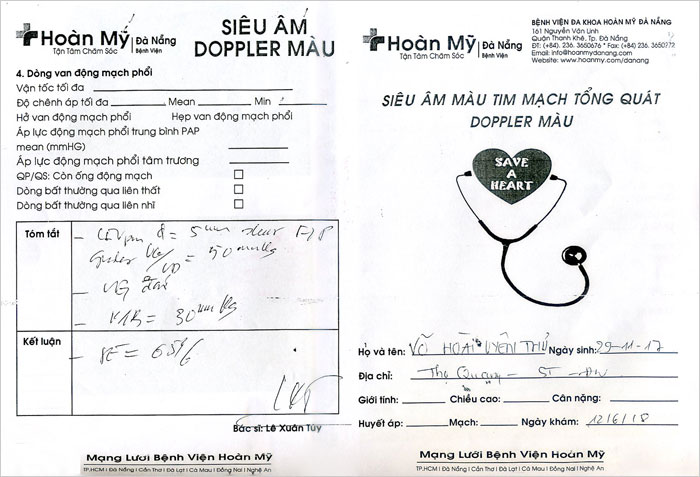 Hoàn Mỹ | Đà Nẵng
Tận Tâm Chăm Sóc Bệnh Viện
SIÊU ÂM
DOPPLER MÀU
4. Dòng van động mạch phổi
Vận tốc tối đa
Độ chênh áp tối đa Mean Min
Hở van động mạch phổi Hẹp van động mạch phổi
Áp lực động mạch phổi trung bình PAP
mean (mmHG)
Áp lực động mạch phổi tâm trương
QP/QS: Còn ống động mạch
Dòng bất thường qua liên thất
Dòng bất thường qua liên nhĩ
Tóm tắt
= 5mm
VG/VD = 50 mmHg
- VG
= 30 mmHg
Kết luận
= 65%
Bác sĩ: Lê Xuân Túy
Mạng Lưới Bệnh Viện Hoàn Mỹ
TP.HCM | Đà Nẵng | Cần Thơ | Đà Lạt | Cà Mau | Đồng Nai | Nghệ An
Hoàn Mỹ | Đà Nẵng
Tận Tâm Chăm Sóc Bệnh Viện
BỆNH VIỆN ĐA KHOA HOÀN MỸ ĐÀ NẴNG
161 Nguyễn Văn Linh
Quận Thanh Khê, Tp. Đà Nẵng
ĐT: (+84). 236. 3650676 * Fax: (+84) 236. 3650272
Email: info@hoanmydanang.com
Website: www.hoanmy.com/danang
SIÊU ÂM MÀU TIM MẠCH TỔNG QUÁT
DOPPLER MÀU
SAVE
A
HEART
Họ và tên: VÕ HOÀI UYÊN THỦ Ngày sinh: 29-11-17
Địa chỉ: Thọ Quang - ST - ĐN
Giới tính: Chiều cao: Cân nặng:
Huyết áp: Mạch: Ngày khám: 12/6/18
Mạng Lưới Bệnh Viện Hoàn Mỹ
TP.HCM | Đà Nẵng | Cần Thơ | Đà Lạt | Cà Mau | Đồng Nai | Nghệ An